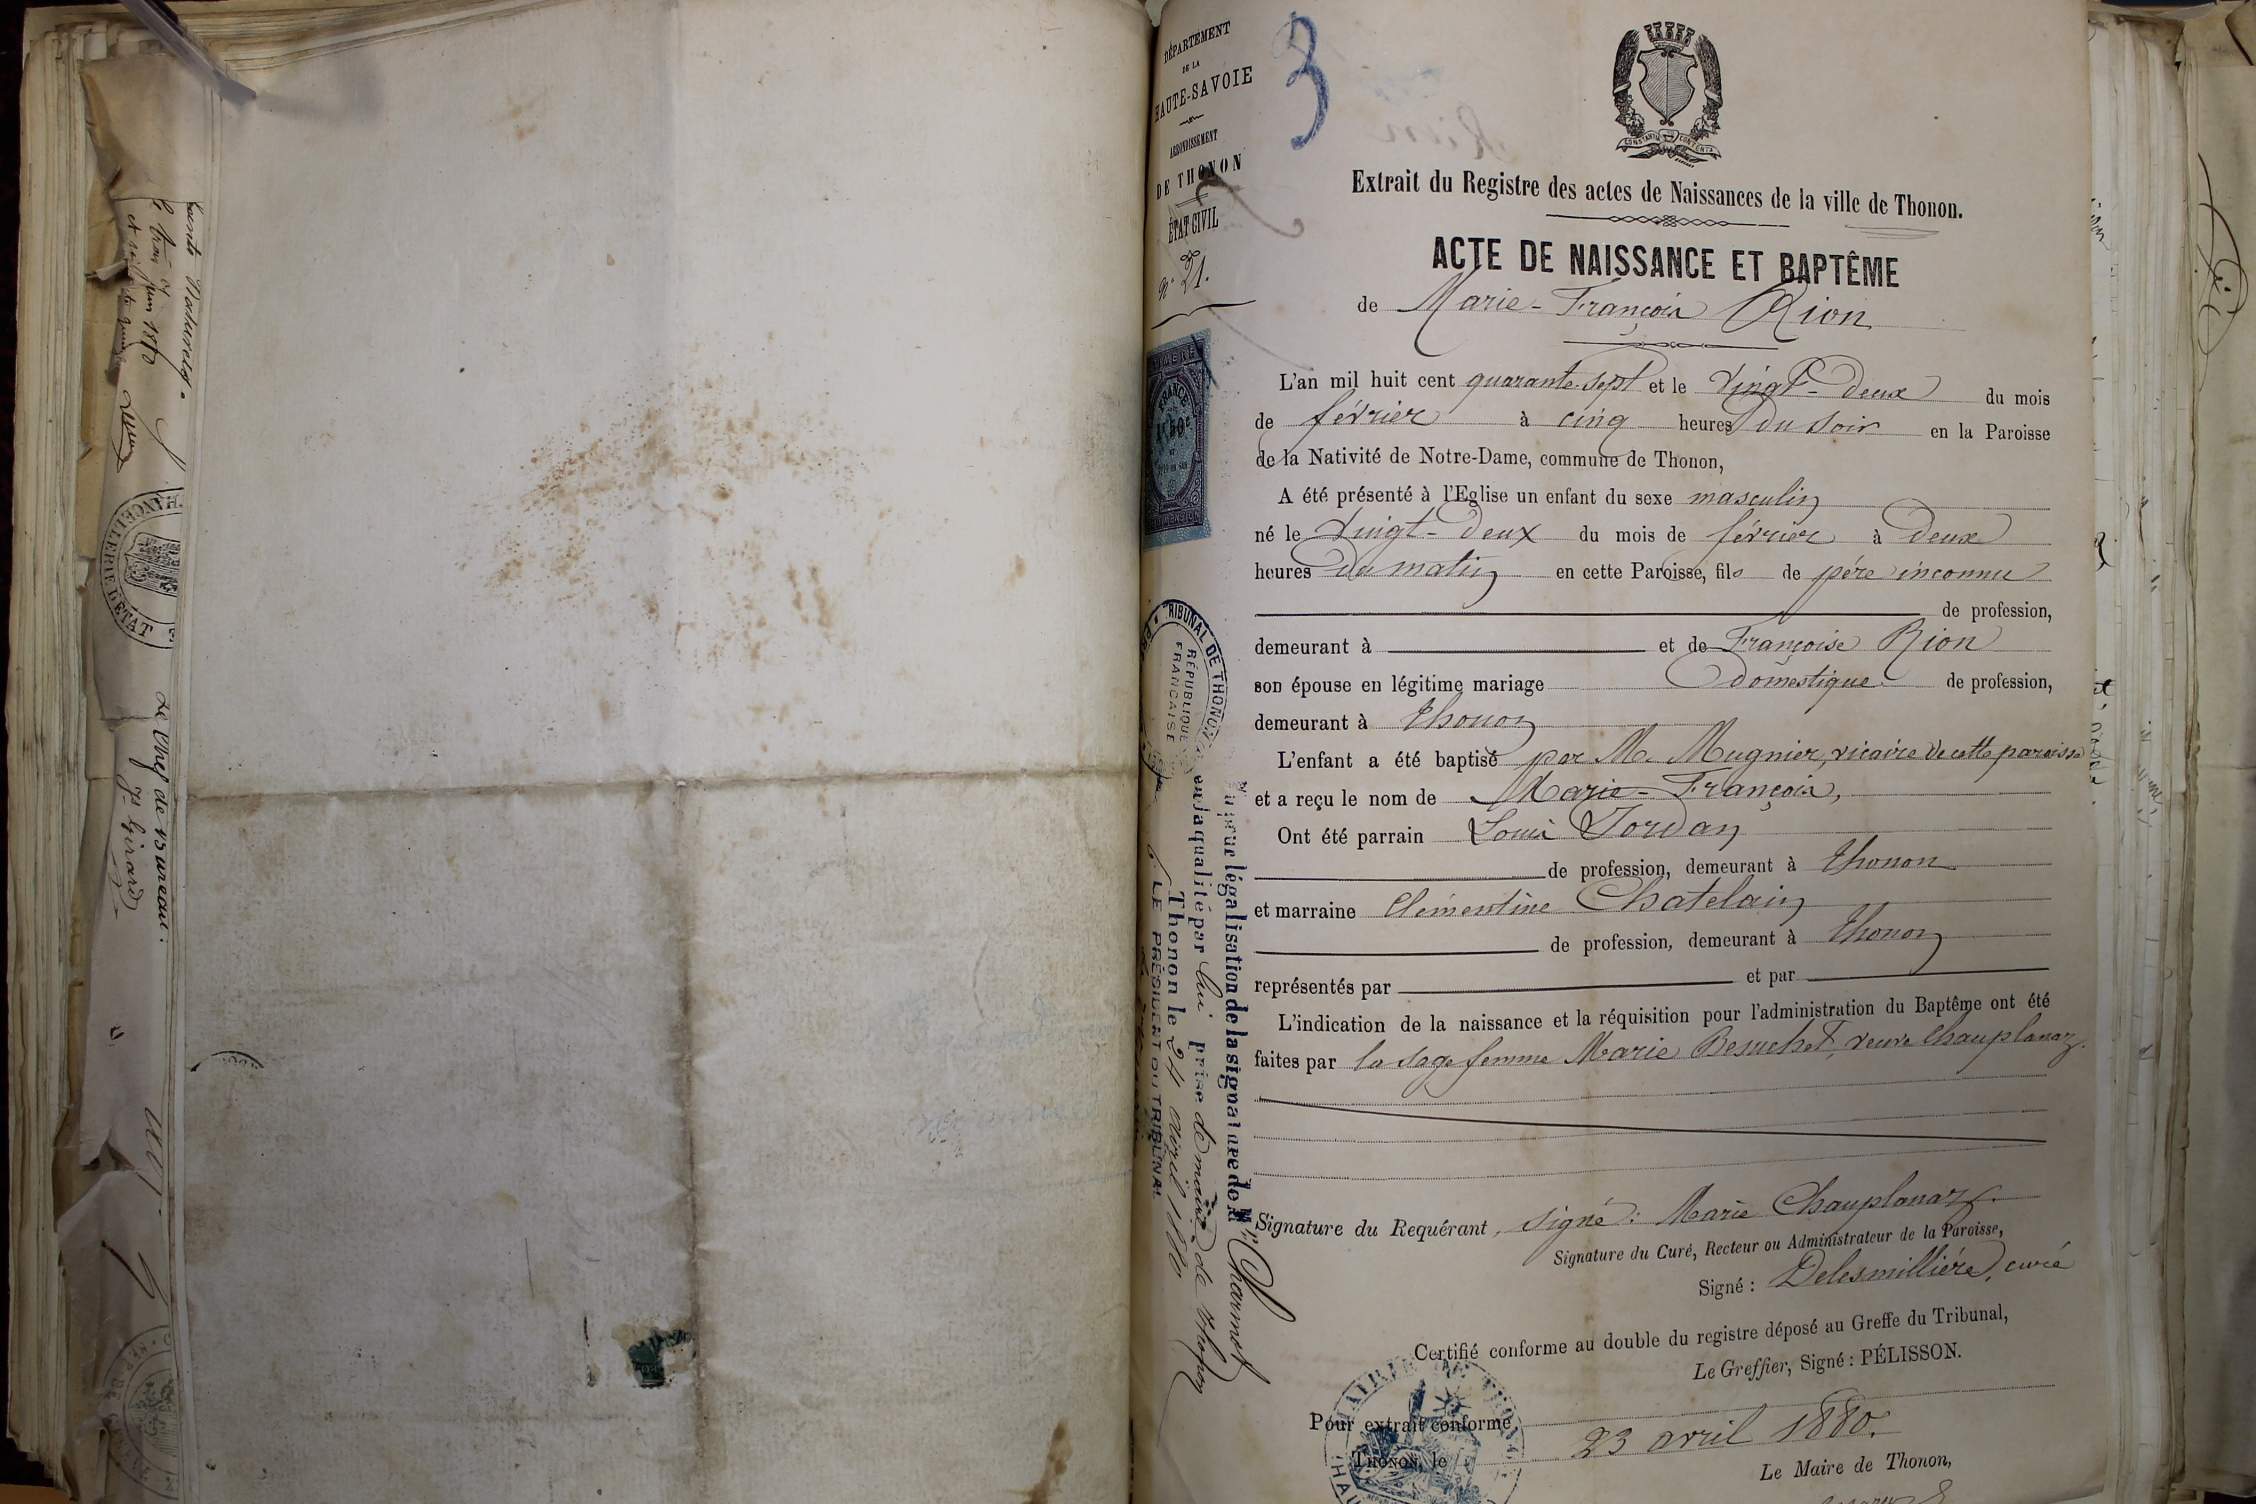 DÉPARTEMENT
DE LA
HAUTE-SAVOIE
ARRONDISSEMENT
DE THONON
ÉTAT CIVIL
N° 21.
3
CONSTANTIA CONTENTA
Extrait du Registre des actes de Naissances de la ville de Thonon.
ACTE DE NAISSANCE ET BAPTÊME
de Marie-François Rion
L'an mil huit cent quarante-sept et le vingt-deux du mois
de février à cinq heures du soir en la Paroisse
de la Nativité de Notre-Dame, commune de Thonon,
A été présenté à l'Eglise un enfant du sexe masculin
né le vingt-deux du mois de février à deux
heures du matin en cette Paroisse, fils de père inconnu
de profession,
demeurant à et de Françoise Rion
son épouse en légitime mariage domestique de profession,
demeurant à Thonon
L'enfant a été baptisé par M. Mugnier, vicaire de cette paroisse
et a reçu le nom de Marie-François,
Ont été parrain Louis Jordan
de profession, demeurant à Thonon
et marraine Clémentine Chatelain
de profession, demeurant à Thonon
représentés par et par
L'indication de la naissance et la réquisition pour l'administration du Baptême ont été
faites par la sage femme Marie Besuchet, veuve Chauplanaz.
Signature du Requérant, signé: Marie Chauplanaz.
Signature du Curé, Recteur ou Administrateur de la Paroisse,
Signé: Delesmillière, curé
Certifié conforme au double du registre déposé au Greffe du Tribunal,
Le Greffier, Signé: PÉLISSON.
Pour extrait conforme,
THONON, le 23 avril 1880.
Le Maire de Thonon,
MAIRIE THONON
FRANCE
TRIBUNAL DE THONON
RÉPUBLIQUE
FRANÇAISE
Vu pour légalisation de la signature de M. Charmot
en sa qualité par lui prise de maire de Thonon
Thonon le 24 avril 1880
LE PRÉSIDENT DU TRIBUNAL
juin 1880
CHANCELLERIE D'ÉTAT
Le Chef de Bureau:
Girard